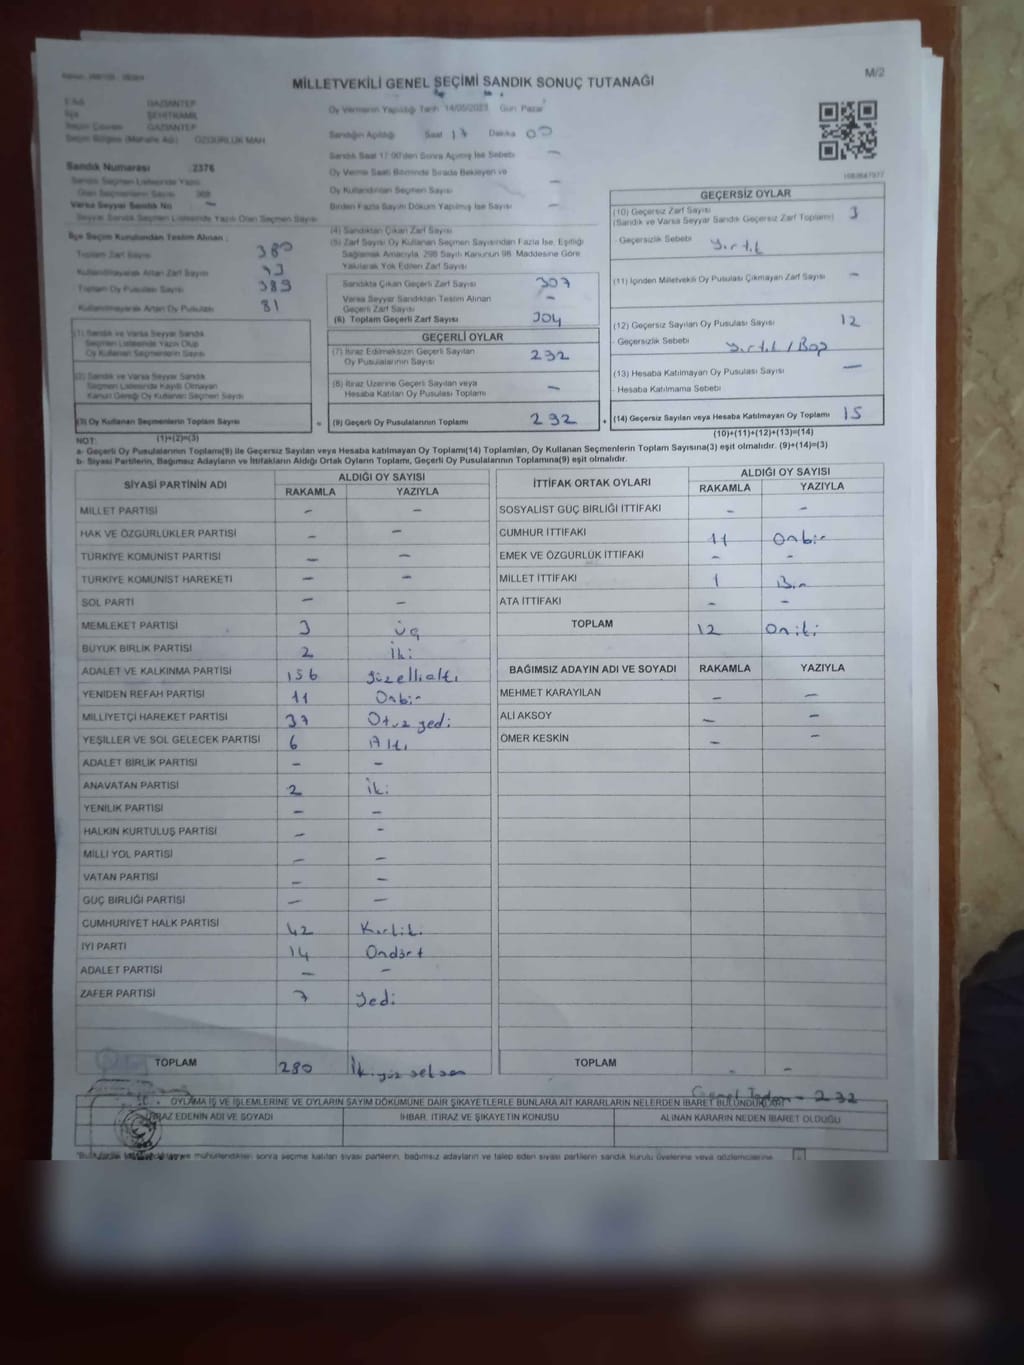 M/2
MİLLETVEKİLİ GENEL SEÇİMİ SANDIK SONUÇ TUTANAĞI
İli Adı GAZİANTEP
İlçe ŞEHİTKAMİL
Seçim Çevresi GAZİANTEP
Seçim Bölgesi (Mahalle Adı) ÖZGÜRLÜK MAH
Sandık Numarası 2376
Sandık Seçmen Listesinde Yazılı
Olan Seçmenlerin Sayısı
Varsa Seyyar Sandık No –
Seyyar Sandık Seçmen Listesinde Yazılı Olan Seçmen Sayısı
İlçe Seçim Kurulundan Teslim Alınan :
Toplam Zarf Sayısı 380
Kullanılmayarak Artan Zarf Sayısı
Toplam Oy Pusulası Sayısı 389
Kullanılmayarak Artan Oy Pusulası 81
(1) Sandık ve Varsa Seyyar Sandık
Seçmen Listesinde Yazılı Olup
Oy Kullanan Seçmenlerin Sayısı
(2) Sandık ve Varsa Seyyar Sandık
Seçmen Listesinde Kayıtlı Olmayan
Kanun Gereği Oy Kullanan Seçmen Sayısı
(3) Oy Kullanan Seçmenlerin Toplam Sayısı
(1)+(2)=(3)
Oy Vermenin Yapıldığı Tarih 14/05/2023 Gün Pazar
Sandığın Açıldığı Saat 17 Dakika 00
Sandık Saat 17:00'den Sonra Açılmış İse Sebebi –
Oy Verme Saati Bitiminde Sırada Bekleyen ve
Oy Kullandırılan Seçmen Sayısı –
Birden Fazla Sayım Döküm Yapılmış İse Sayısı –
(4) Sandıktan Çıkan Zarf Sayısı
(5) Zarf Sayısı Oy Kullanan Seçmen Sayısından Fazla İse, Eşitliği
Sağlamak Amacıyla, 298 Sayılı Kanunun 98. Maddesine Göre
Yakılarak Yok Edilen Zarf Sayısı
Sandıkta Çıkan Geçerli Zarf Sayısı 307
Varsa Seyyar Sandıktan Teslim Alınan
Geçerli Zarf Sayısı –
(6) Toplam Geçerli Zarf Sayısı 304
GEÇERLİ OYLAR
(7) İtiraz Edilmeksizin Geçerli Sayılan
Oy Pusulalarının Sayısı 292
(8) İtiraz Üzerine Geçerli Sayılan veya
Hesaba Katılan Oy Pusulası Toplamı –
= (9) Geçerli Oy Pusulalarının Toplamı 292
GEÇERSİZ OYLAR
(10) Geçersiz Zarf Sayısı
(Sandık ve Varsa Seyyar Sandık Geçersiz Zarf Toplamı) 3
Geçersizlik Sebebi Yırtık
(11) İçinden Milletvekili Oy Pusulası Çıkmayan Zarf Sayısı –
(12) Geçersiz Sayılan Oy Pusulası Sayısı 12
Geçersizlik Sebebi Yırtık / Boş
(13) Hesaba Katılmayan Oy Pusulası Sayısı –
Hesaba Katılmama Sebebi
+ (14) Geçersiz Sayılan veya Hesaba Katılmayan Oy Toplamı 15
(10)+(11)+(12)+(13)=(14)
NOT:
a- Geçerli Oy Pusulalarının Toplamı(9) ile Geçersiz Sayılan veya Hesaba katılmayan Oy Toplamı(14) Toplamları, Oy Kullanan Seçmenlerin Toplam Sayısına(3) eşit olmalıdır. (9)+(14)=(3)
b- Siyasi Partilerin, Bağımsız Adayların ve İttifakların Aldığı Ortak Oyların Toplamı, Geçerli Oy Pusulalarının Toplamına(9) eşit olmalıdır.
SİYASİ PARTİNİN ADI ALDIĞI OY SAYISI
RAKAMLA YAZIYLA
MİLLET PARTİSİ – –
HAK VE ÖZGÜRLÜKLER PARTİSİ – –
TÜRKİYE KOMÜNİST PARTİSİ – –
TÜRKİYE KOMÜNİST HAREKETİ – –
SOL PARTİ – –
MEMLEKET PARTİSİ 3 üç
BÜYÜK BİRLİK PARTİSİ 2 iki
ADALET VE KALKINMA PARTİSİ 156 yüzellialtı
YENİDEN REFAH PARTİSİ 11 Onbir
MİLLİYETÇİ HAREKET PARTİSİ 37 Otuz yedi
YEŞİLLER VE SOL GELECEK PARTİSİ 6 Altı
ADALET BİRLİK PARTİSİ – –
ANAVATAN PARTİSİ 2 İki
YENİLİK PARTİSİ – –
HALKIN KURTULUŞ PARTİSİ – –
MİLLİ YOL PARTİSİ – –
VATAN PARTİSİ – –
GÜÇ BİRLİĞİ PARTİSİ – –
CUMHURİYET HALK PARTİSİ 42 Kırkiki
İYİ PARTİ 14 Ondört
ADALET PARTİSİ – –
ZAFER PARTİSİ 7 yedi
TOPLAM 280 İkiyüz seksen
İTTİFAK ORTAK OYLARI ALDIĞI OY SAYISI
RAKAMLA YAZIYLA
SOSYALİST GÜÇ BİRLİĞİ İTTİFAKI – –
CUMHUR İTTİFAKI 11 Onbir
EMEK VE ÖZGÜRLÜK İTTİFAKI – –
MİLLET İTTİFAKI 1 Bir
ATA İTTİFAKI – –
TOPLAM 12 Oniki
BAĞIMSIZ ADAYIN ADI VE SOYADI RAKAMLA YAZIYLA
MEHMET KARAYILAN – –
ALİ AKSOY – –
ÖMER KESKİN – –
TOPLAM – –
Genel Toplam - 292
OYLAMA İŞ VE İŞLEMLERİNE VE OYLARIN SAYIM DÖKÜMÜNE DAİR ŞİKAYETLERLE BUNLARA AİT KARARLARIN NELERDEN İBARET BULUNDUKLARI
İTİRAZ EDENİN ADI VE SOYADI İHBAR, İTİRAZ VE ŞİKAYETİN KONUSU ALINAN KARARIN NEDEN İBARET OLDUĞU
mühürlendikten sonra seçime katılan siyasi partilerin, bağımsız adayların ve talep eden siyasi partilerin sandık kurulu üyelerine veya gözlemcilerine